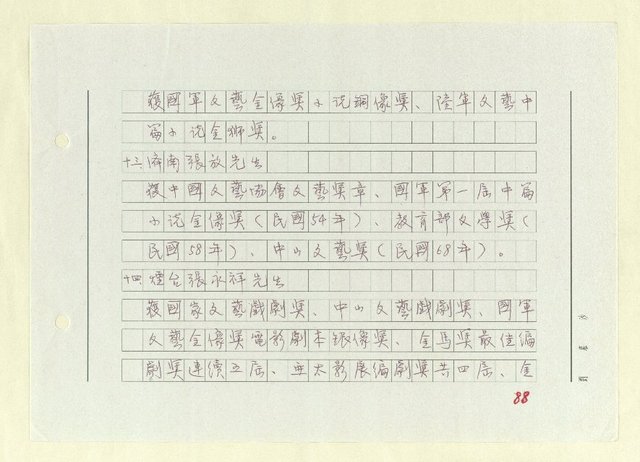 獲國軍文藝金像獎小說銅像獎、陸軍文藝中
篇小說金獅獎。
十三、濟南張放先生
獲中國文藝協會文藝獎章、國軍第一屆中篇
小說金像獎(民國54年)、教育部文學獎(
民國58年)、中山文藝獎(民國68年)。
十四、煙台張永祥先生
獲國家文藝戲劇獎、中山文藝戲劇獎、國軍
文藝金像獎電影劇本銀像獎、金馬獎最佳編
劇獎連續五屆、亞太影展編劇獎共四屆、金
88